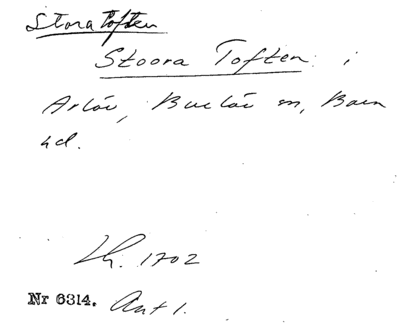 Stora Toften
Stoora Toften i
Arlöv, Burlöv sn, Bara
hd.
Lh. 1702
Nr 6314. Ant 1.